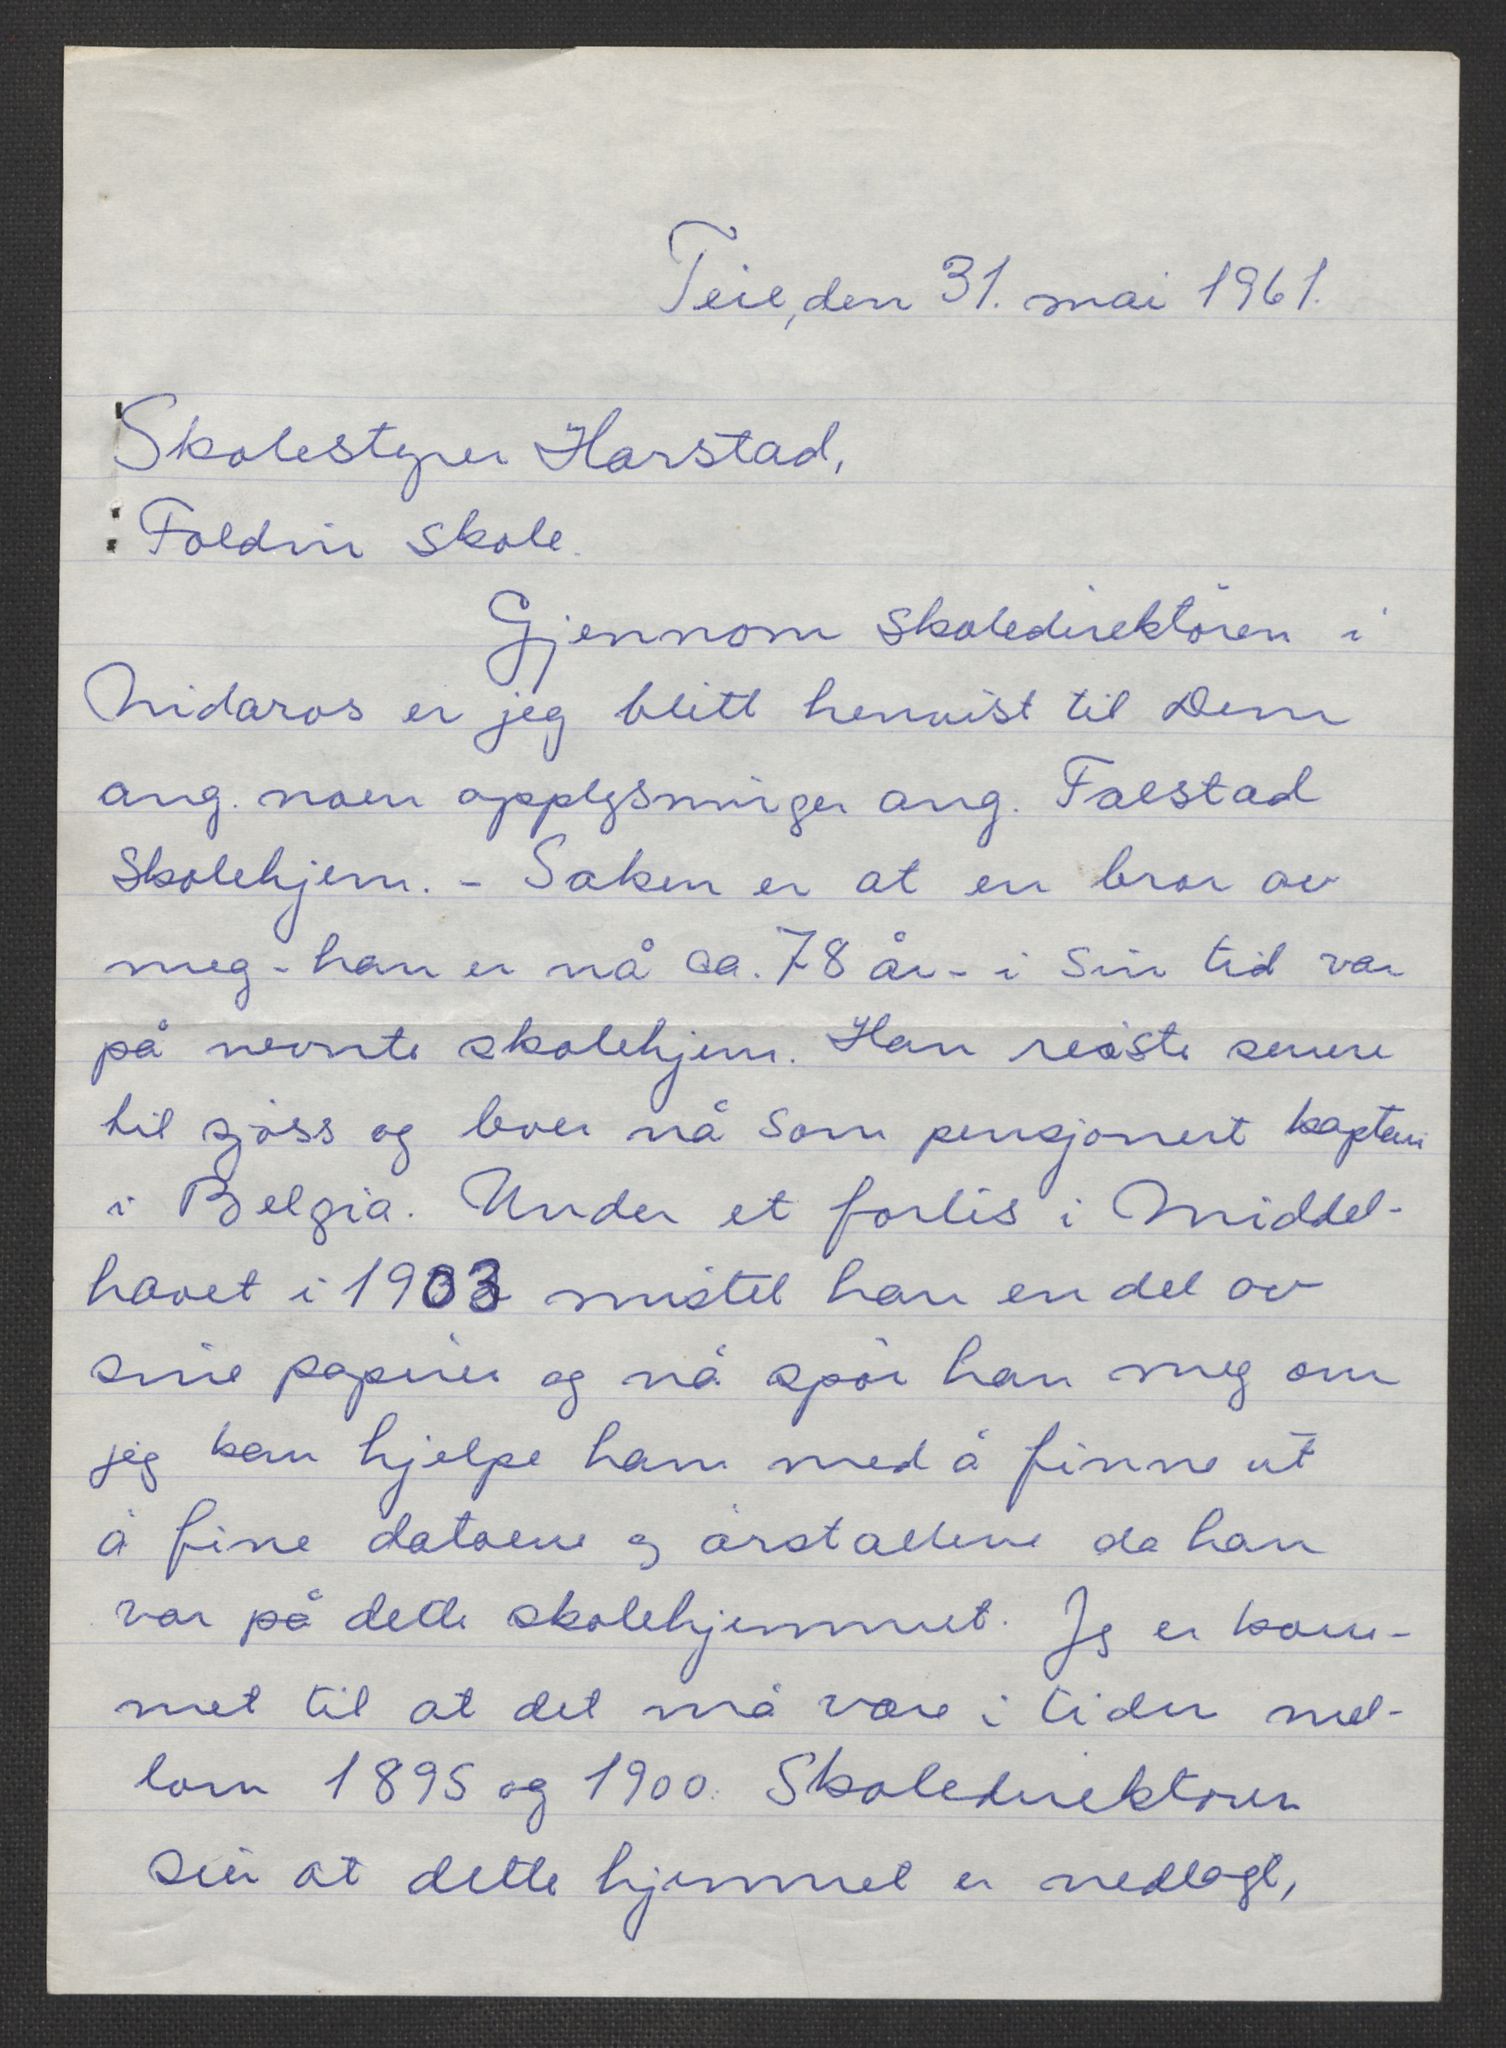 Teie, den 31. mai 1961.
Skolestyrer Harstad,
Foldvin skole.
Gjennom skoledirektören i
Nidaros er jeg blitt henvist til Dem
ang. noen opplysninger ang. Falstad
Skolehjem. - Saken er at en bror av
meg - han er nå ca. 78 år - i sin tid var
på nevnte skolehjem. Han reiste senere
til sjöss og lever nå som pensjonert kaptein
i Belgia. Under et forlis i Middel-
havet i 1903 mistet han en del av
sine papirer og nå spör han meg om
jeg kan hjelpe ham med å finne ut
å fine datoene og årstallene da han
var på dette skolehjemmet. Jeg er kom-
met til at det må være i tiden mel-
lom 1895 og 1900. Skoledirektören
sier at dette hjemmet er nedlagt,